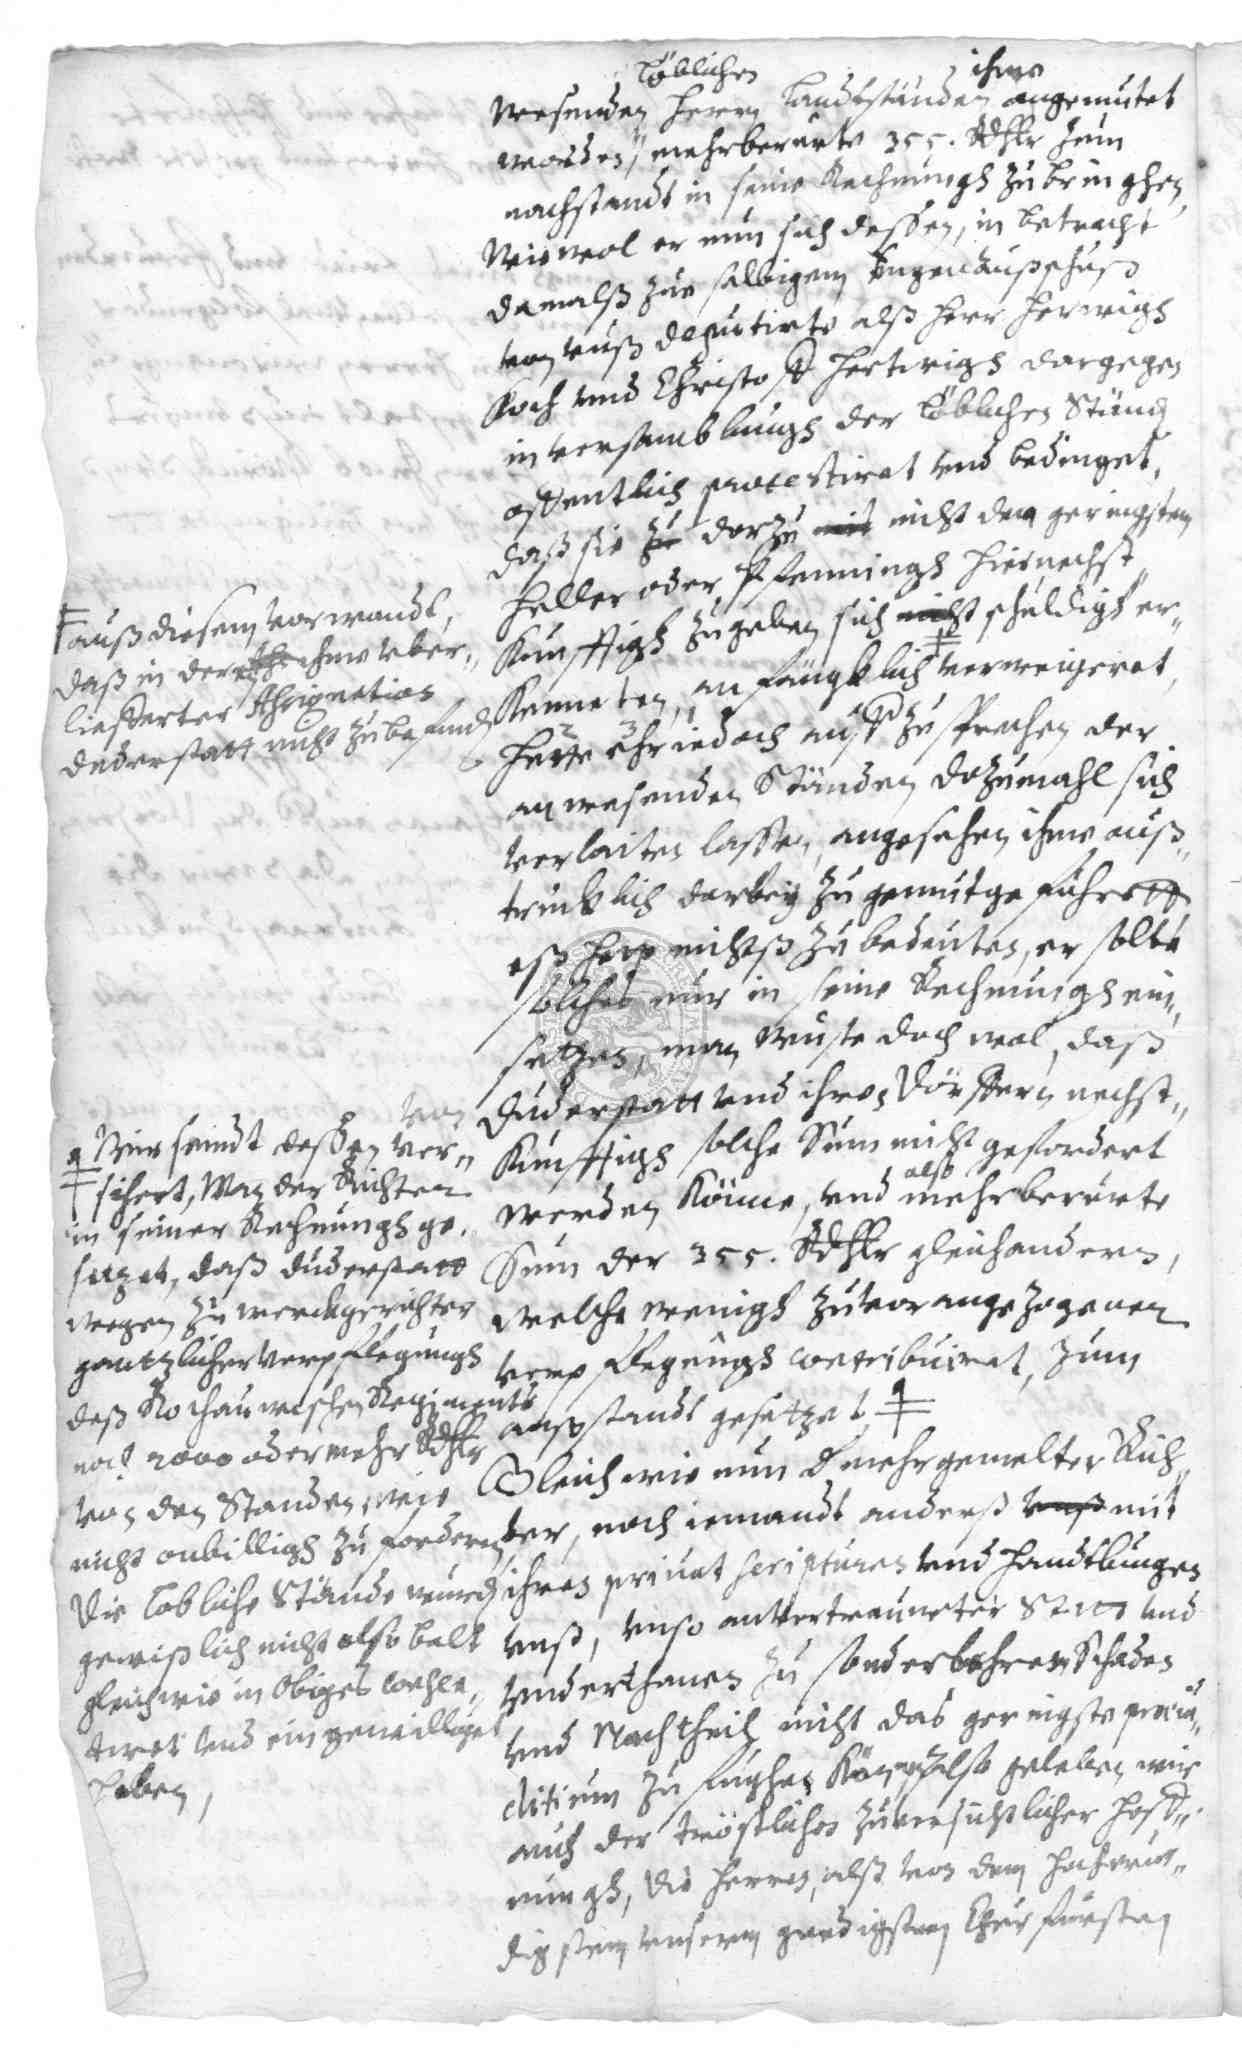 löblichen ihme
wesenden herrn Landtständen angemutet
worden, mehrberürte 355. Rdthlr zum
nachstandt in seine Rechnungh zu bringhen,
Wiewol er nun sich dessen, in betracht
damalß zue selbigem Engenaußschuß
von unß deputirte alß herr Herwigh
Koch und Christoff Hertwigh dargegen
in versamblungh der löblichen Ständ
offentlich protestiret und bedinget,
daß sie darzu nicht den geringsten
heller oder Pfenningh hiernechst
Künfftigh zu geben sich nicht schuldigh er„
kenneten, anfängklich verweigeret,
hette ehr iedoch auff zusprechen der
anwesenden Ständen dazumahl sich
verleiten lassen, angesehen ihme auß„
trucklich darbey zu gemut geführett
eß hette nichtß zu bedeuten, er solte
solches nur in seine Rechnungh ein„
setzen, man wuste doch wol, daß
Duderstatt und ihren Dörffern nechst„
Künfftigh solche Sum nicht gefordert
werden Könne, und also mehrberürte
Sum der 355. Rdthlr gleich andern,
welche wenigh zuvor angezogenen
verpflegungh contribuiret, zum
außstandt gesetzet
Gleich wie nun mehrgemelter Rich„
ter, noch iemandt anderß mit
ihren privat scripturen und handtlungen
unß, unß anvertraueter Statt und
Underthanen zu sonderbahren Schaden
und Nachtheil nicht das geringste preiu„
ditium zu fughen Kön, Also geleben wir
auch der tröstlichen zuversichtlicher hoff„
nungh, die herren, alß von dem hochwür„
digstem unserem gnedigsten Churfürsten
auß diesem vorwandt,
daß in der ihme uber„
liefferter Assignation
Duderstatt nicht zubefind
Wir seindt dessen ver„
sichert, Wan der Richter
in seiner Rechnungh ge„
setzet, daß Duderstatt
wegen zu werckgerichter
gantzlicher verpflegungh
deß Kochauwischen Regiments
noch 2000 oder mehr Rdthlr
von den Standen, wie
nicht onbilligh zu forderen,
Die lobliche Stände wurd
gewißlich nicht also balt
gleich wie in obiges
und eingewilliget
haben,